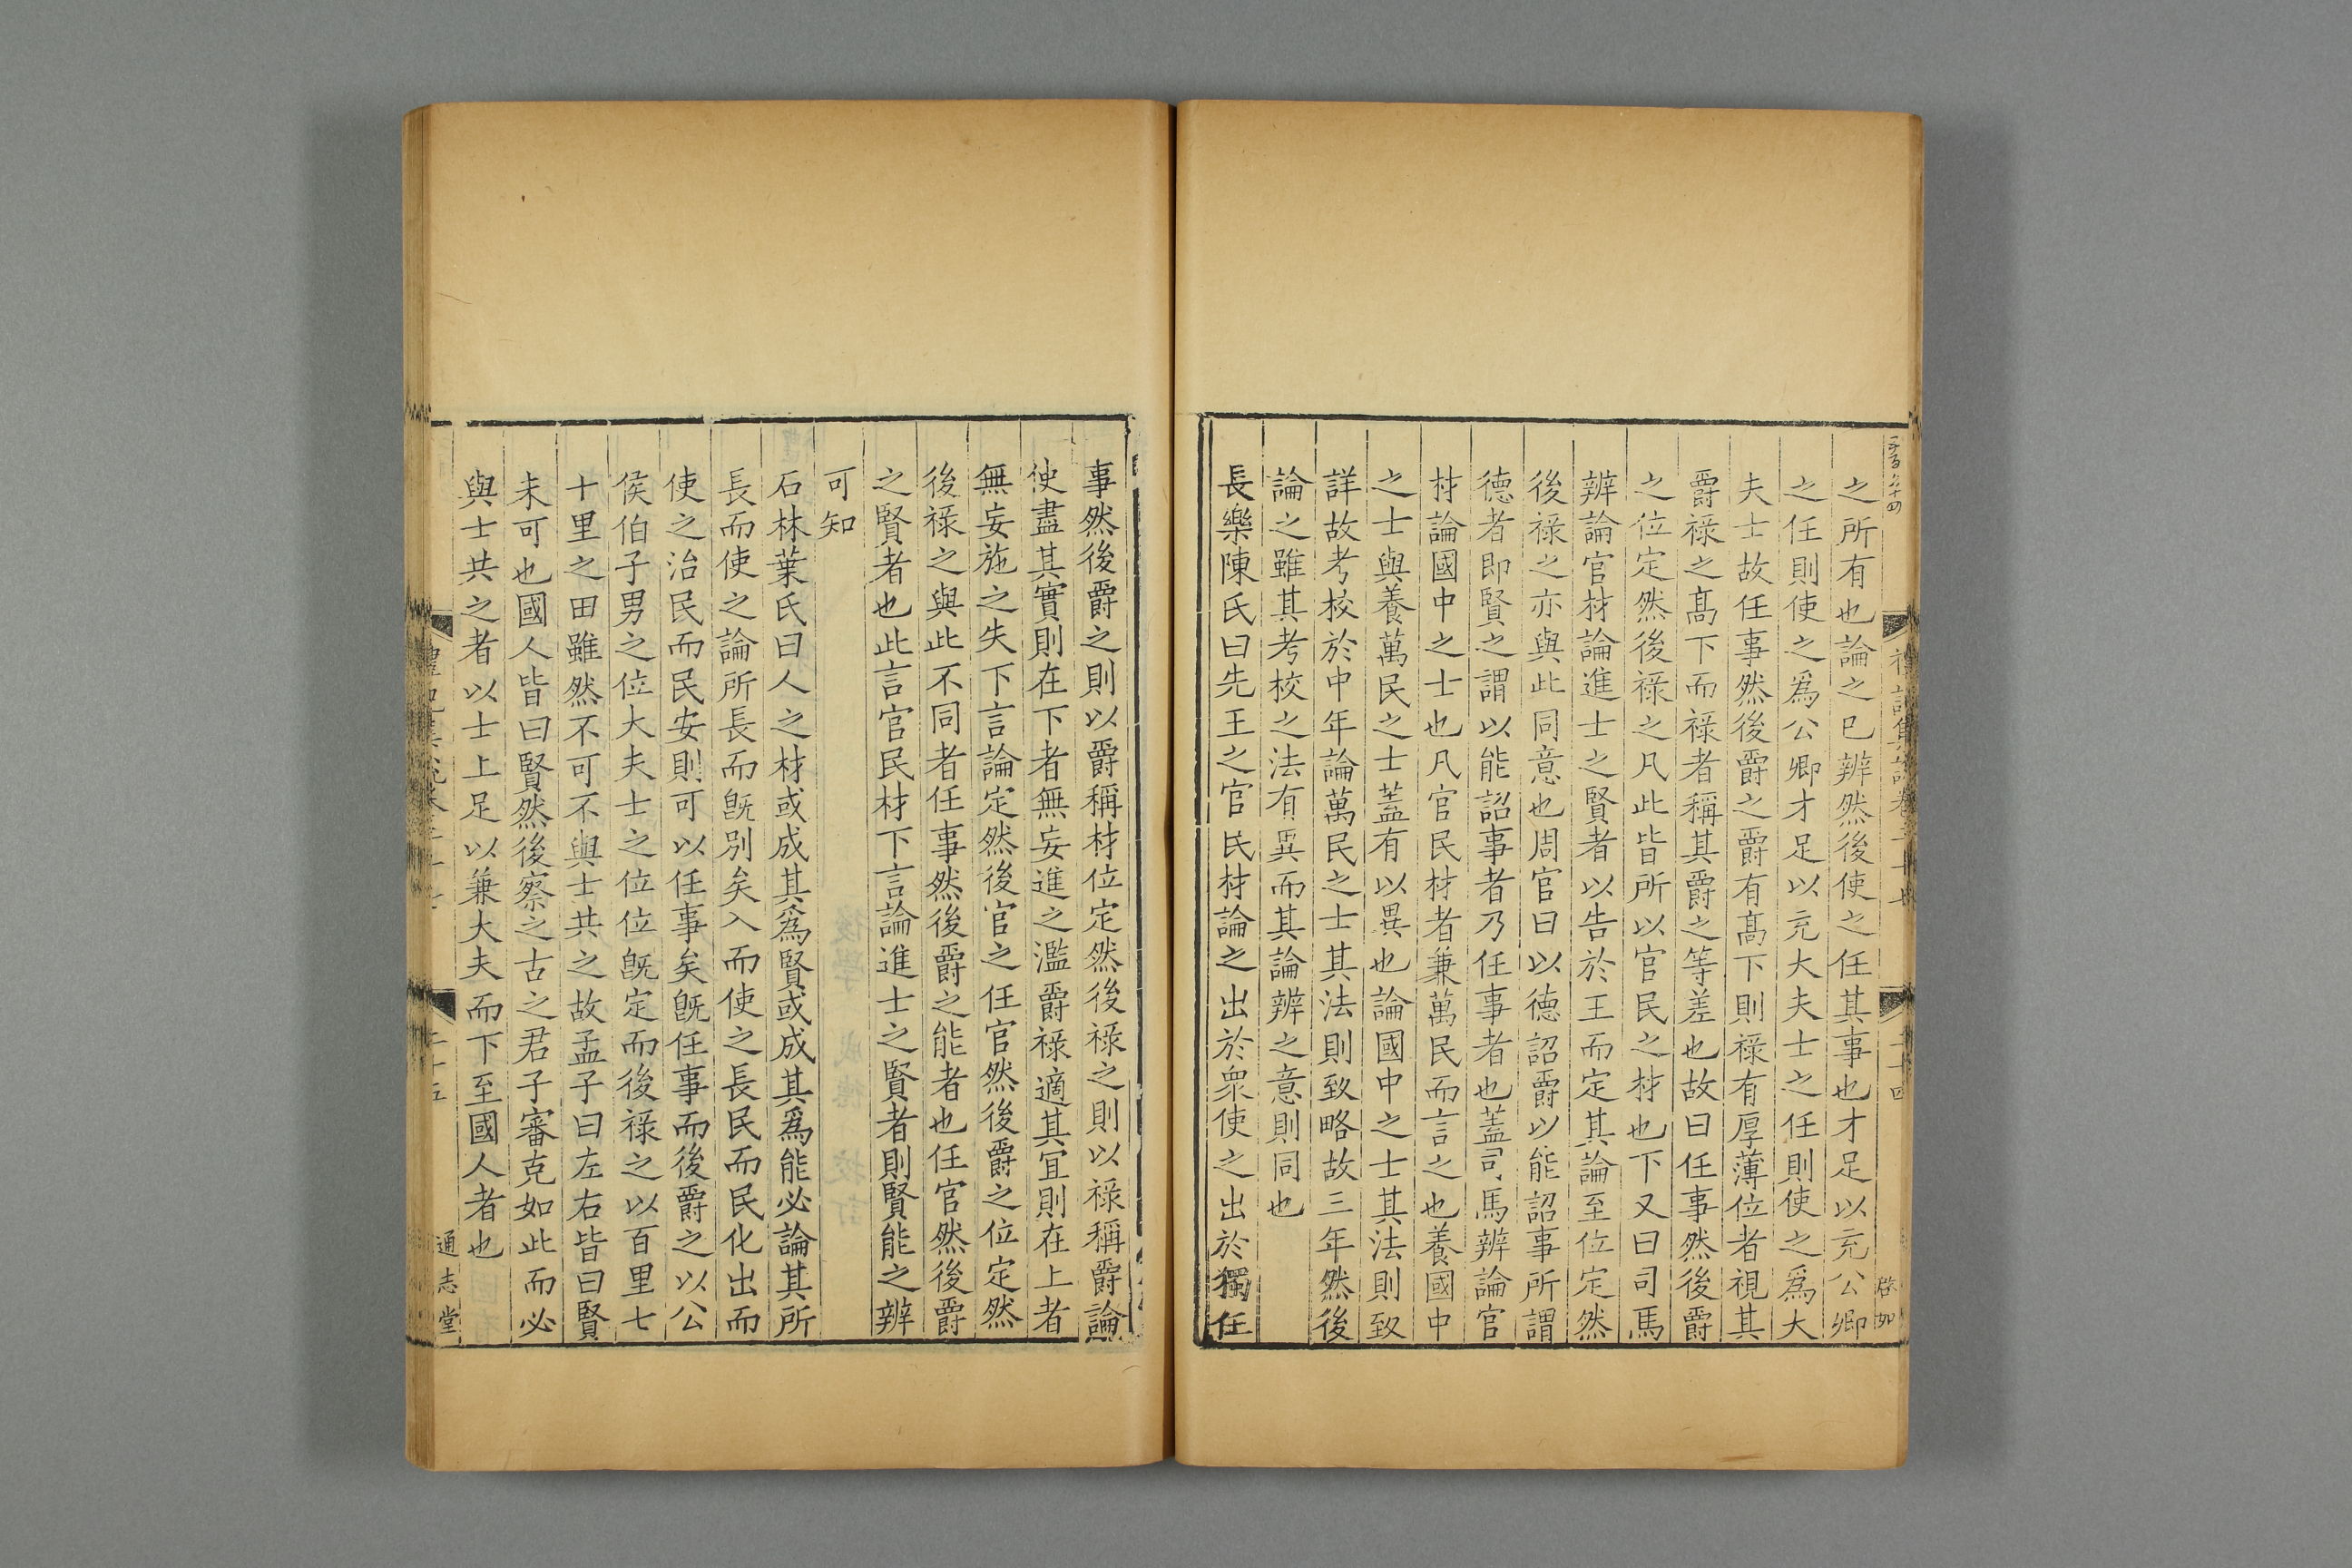 之所有也論之已辨然後使之任其事也才足以充公卿
之任則使之爲公卿才足以充大夫士之任則使之爲大
夫士故任事然後爵之爵有髙下則禄有厚薄位者視其
爵禄之髙下而禄者稱其爵之等差也故曰任事然後爵
之位定然後禄之凡此皆所以官民之材也下又曰司馬
辨論官材論進士之賢者以告於王而定其論至位定然
後禄之亦與此同意也周官曰以德詔爵以能詔事所謂
德者即賢之謂以能詔事者乃任事者也蓋司馬辨論官
材論國中之士也凡官民材者兼萬民而言之也養國中
之士與養萬民之士蓋有以異也論國中之士其法則致
詳故考校於中年論萬民之士其法則致略故三年然後
論之雖其考校之法有異而其論辨之意則同也
長樂陳氏曰先王之官民材論之出於衆使之出於獨任
事然後爵之則以爵稱材位定然後禄之則以禄稱爵論
使盡其實則在下者無妄進之濫爵禄適其冝則在上者
無妄施之失下言論定然後官之任官然後爵之位定然
後禄之與此不同者任事然後爵之能者也任官然後爵
之賢者也此言官民材下言論進士之賢者則賢能之辨
可知
石林葉氏曰人之材或成其爲賢或成其爲能必論其所
長而使之論所長而旣别矣入而使之長民而民化出而
使之治民而民安則可以任事矣旣任事而後爵之以公
侯伯子男之位大夫士之位位旣定而後禄之以百里七
十里之田雖然不可不與士共之故孟子曰左右皆曰賢
未可也國人皆曰賢然後察之古之君子審克如此而必
與士共之者以士上足以兼大夫而下至國人者也
通志堂